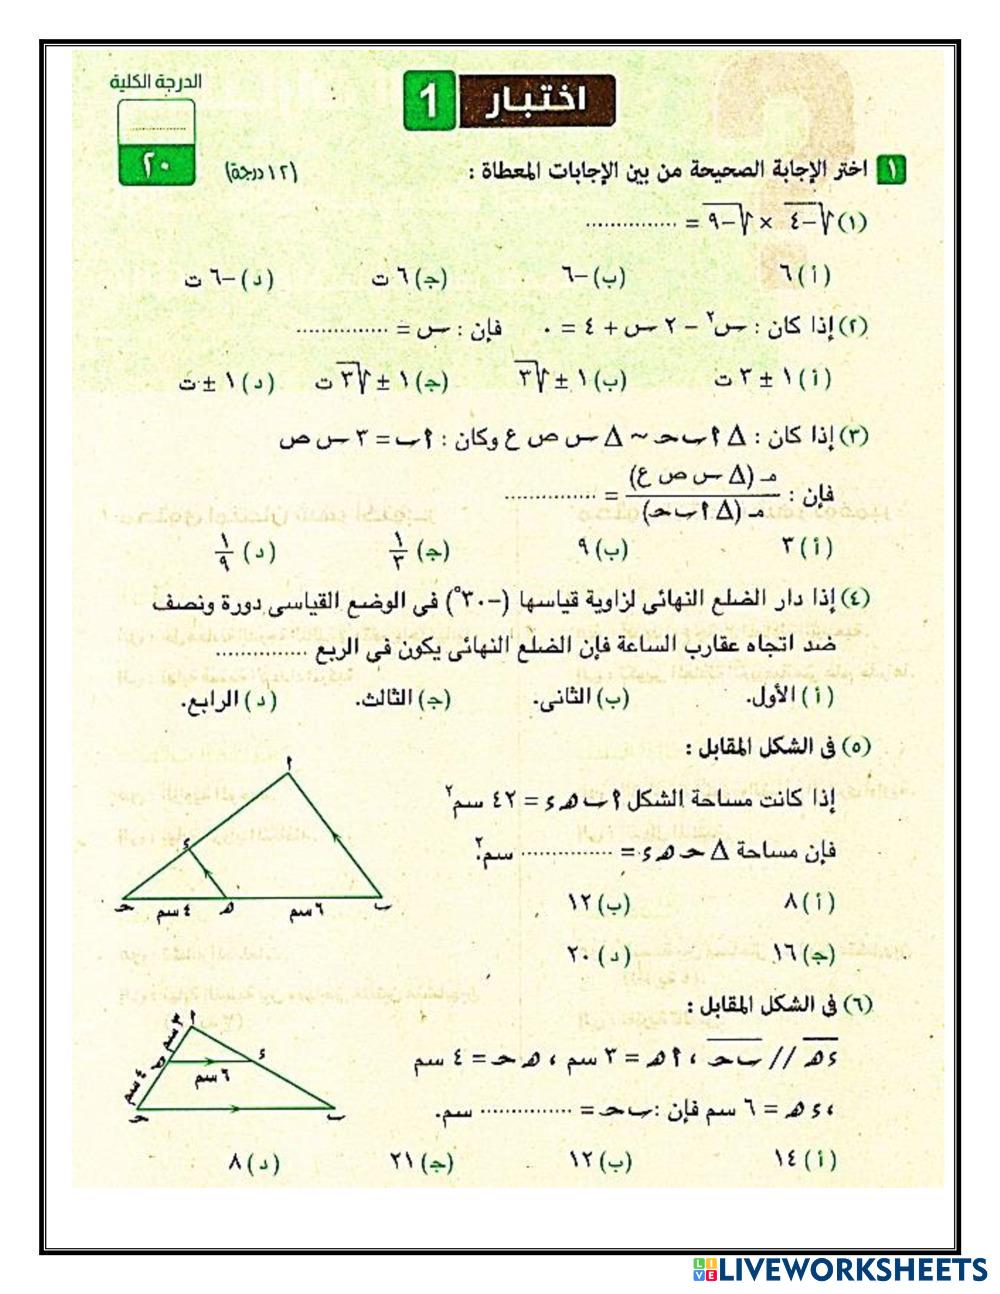 الدرجة الكلية
٢٠
اختبار 1
١ اختر الإجابة الصحيحة من بين الإجابات المعطاة : (١٢ درجة)
(١) √-٤ × √-٩ = ...............
(أ) ٦ (ب) -٦ (ج) ٦ ت (د) -٦ ت
(٢) إذا كان : س٢ - ٢ س + ٤ = ٠ فإن : س = ...............
(أ) ١ ± ٣ ت (ب) ١ ± √٣ (ج) ١ ± √٣ ت (د) ١ ± ت
(٣) إذا كان : Δ أ ب حـ ~ Δ س ص ع وكان : أ ب = ٣ س ص
فإن : مـ (Δ س ص ع) / مـ (Δ أ ب حـ) = ...............
(أ) ٣ (ب) ٩ (ج) ١/٣ (د) ١/٩
(٤) إذا دار الضلع النهائى لزاوية قياسها (-٣٠°) فى الوضع القياسى دورة ونصف
ضد اتجاه عقارب الساعة فإن الضلع النهائى يكون فى الربع ...............
(أ) الأول. (ب) الثانى. (ج) الثالث. (د) الرابع.
(٥) فى الشكل المقابل :
إذا كانت مساحة الشكل أ ب هـ ء = ٤٢ سم٢
فإن مساحة Δ حـ هـ ء = ............... سم٢.
(أ) ٨ (ب) ١٢
(ج) ١٦ (د) ٢٠
أ
ء
حـ ٤ سم هـ ٦ سم ب
(٦) فى الشكل المقابل :
ء هـ // ب حـ ، أ هـ = ٣ سم ، هـ حـ = ٤ سم
، ء هـ = ٦ سم فإن : ب حـ = ............... سم.
(أ) ١٤ (ب) ١٢ (ج) ٢١ (د) ٨
أ
٣ سم
هـ ٦ سم ء
٤ سم
حـ ب
LIVEWORKSHEETS